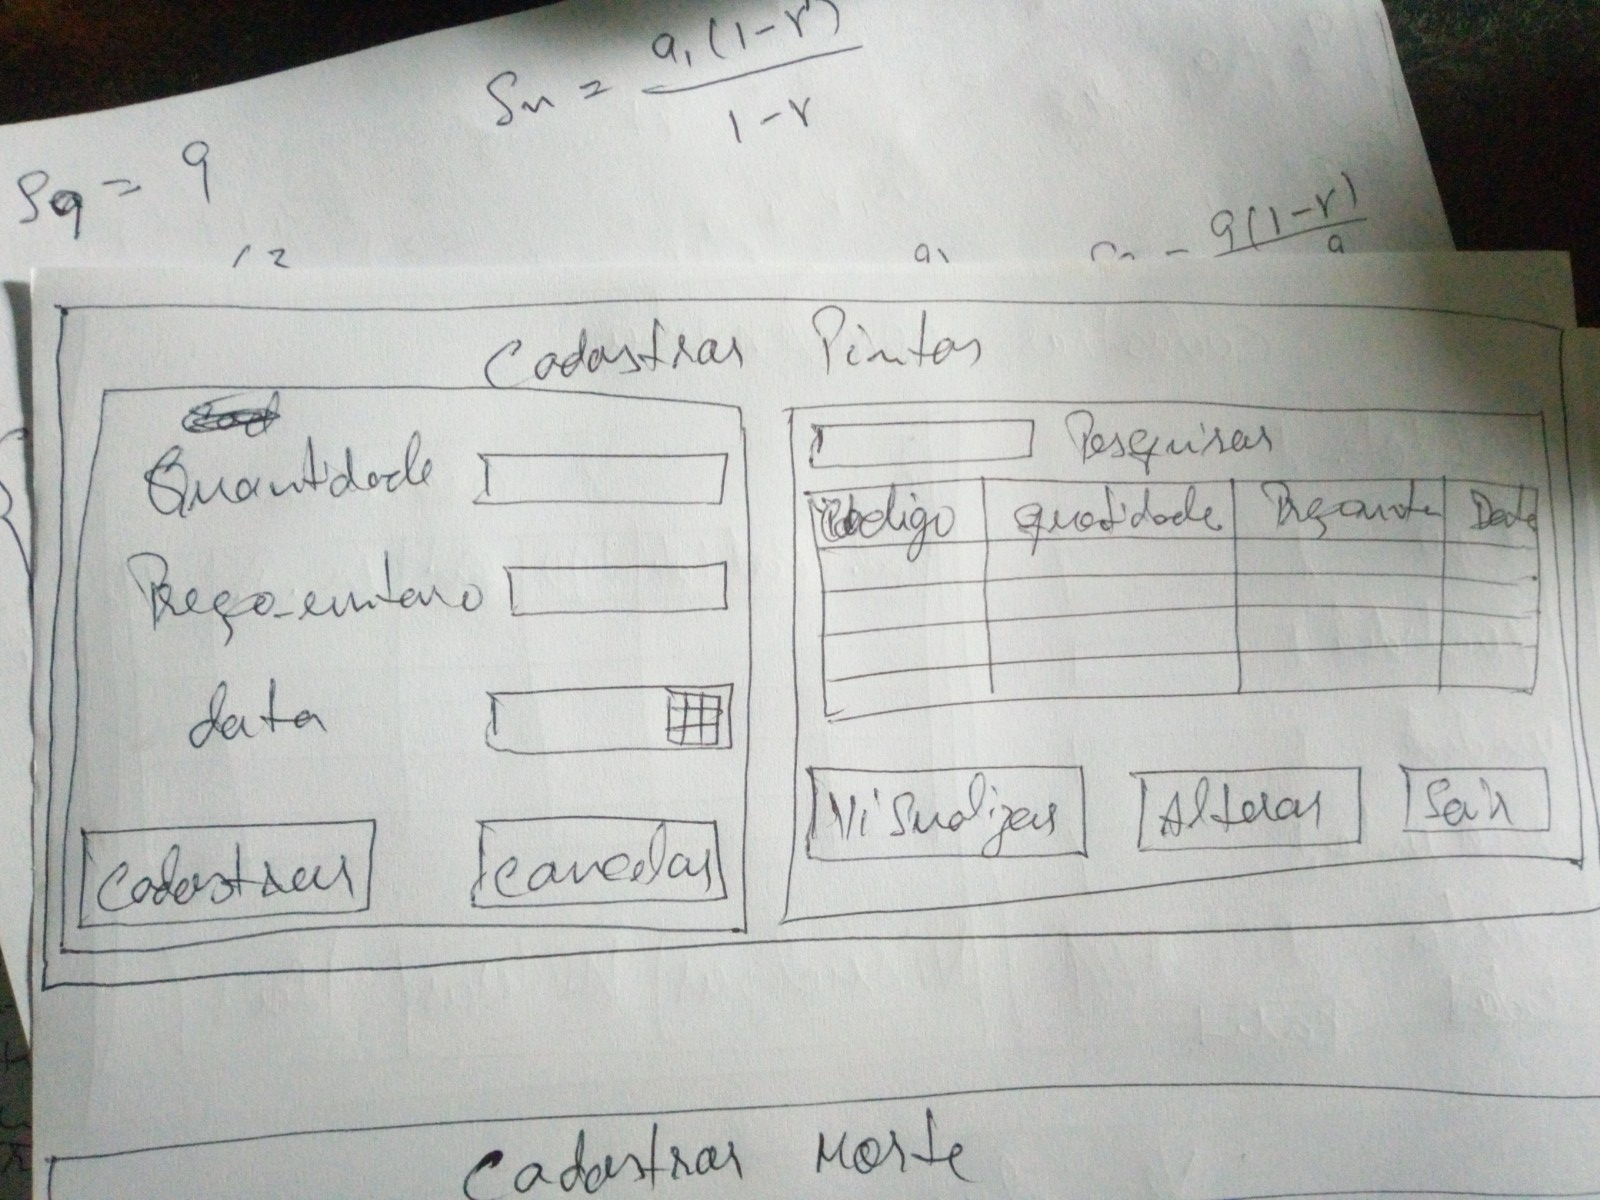 Sn = a1(1-r)
1-r
S9 = 9
Cadastrar Pintos
Quantidade
Preço-unitario
data
Cadastrar
Cancelar
Pesquisar
Codigo quatidade Data
Visualizar Alterar Sair
Cadastrar Morte